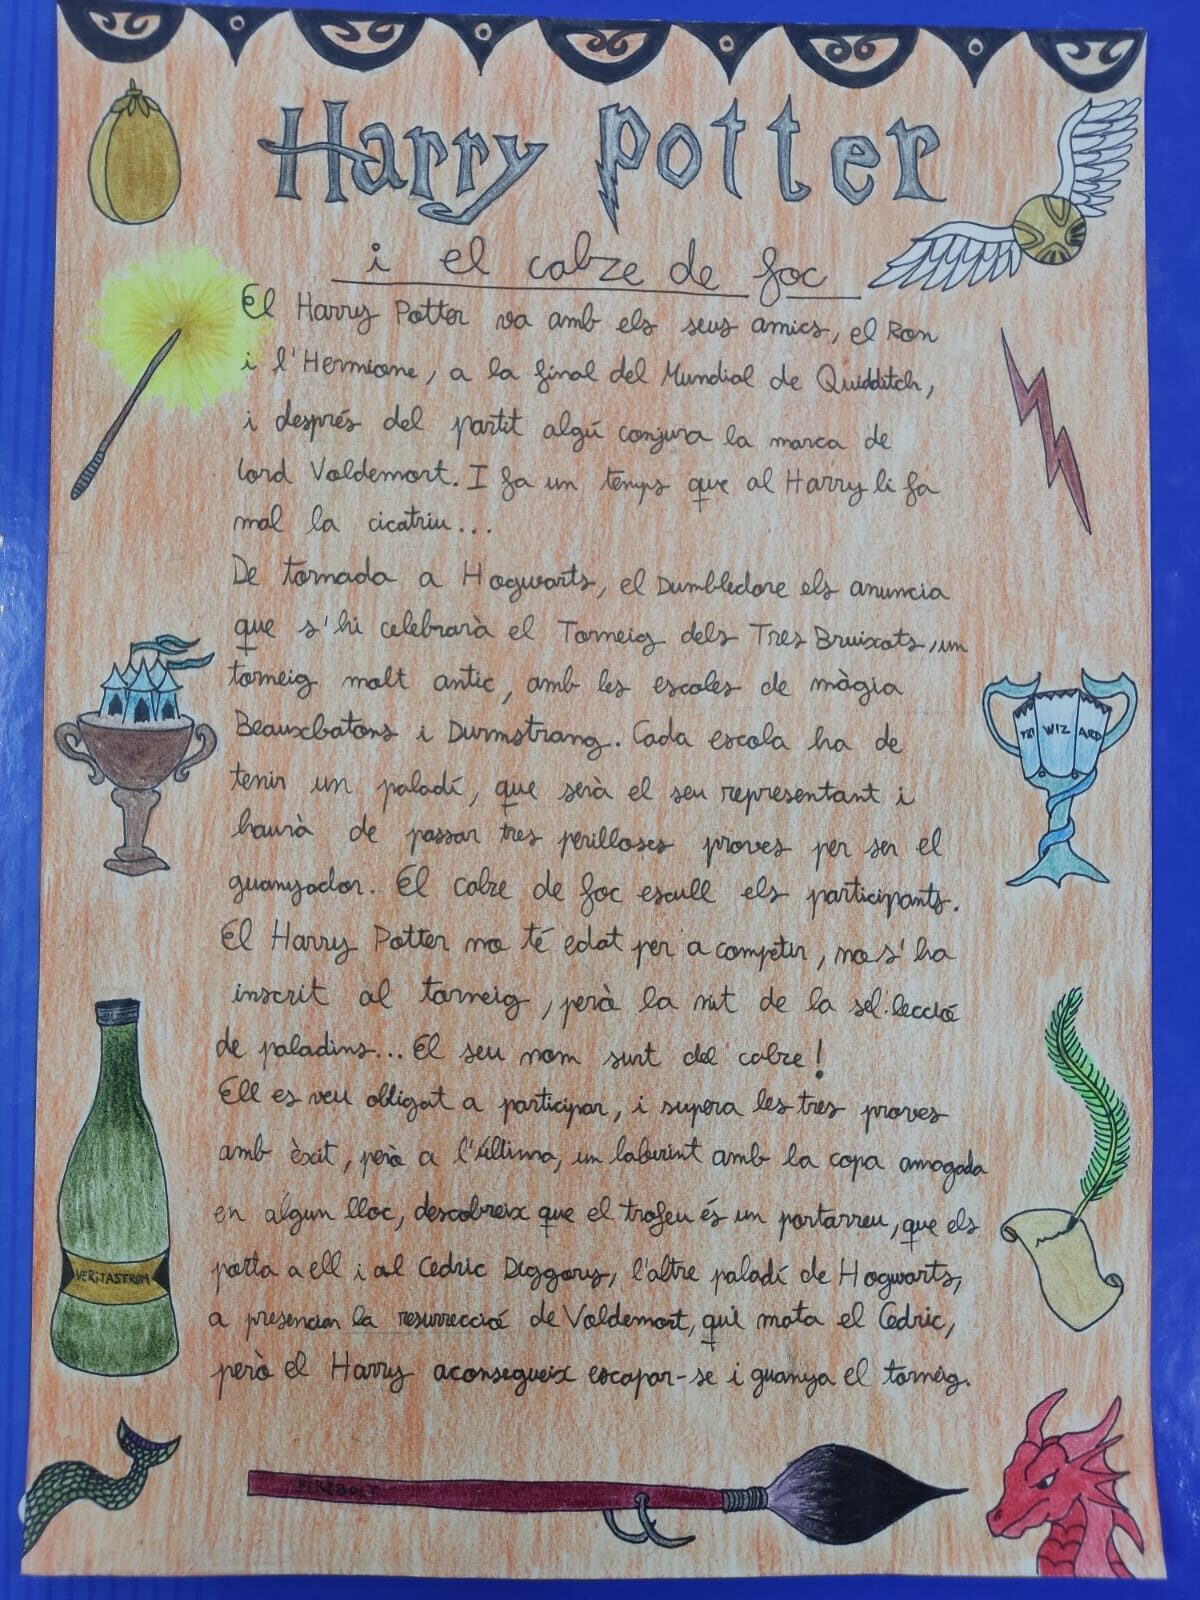 Harry Potter
i el calze de foc
El Harry Potter va amb els seus amics, el Ron
i l'Hermione, a la final del Mundial de Quidditch,
i després del partit algú conjura la marca de
Lord Voldemort. I fa un temps que al Harry li fa
mal la cicatriu...
De tornada a Hogwarts, el Dumbledore els anuncia
que s'hi celebrarà el Torneig dels Tres Bruixots, un
torneig molt antic, amb les escoles de màgia
Beauxbatons i Durmstrang. Cada escola ha de
tenir un paladí, que serà el seu representant i
haurà de passar tres perilloses proves per ser el
guanyador. El calze de foc escull els participants.
El Harry Potter no té edat per a competir, no s'ha
inscrit al torneig, però la nit de la sel·lecció
de paladins... El seu nom surt del calze!
Ell es veu obligat a participar, i supera les tres proves
amb èxit, però a l'última, un laberint amb la copa amagada
en algun lloc, descobreix que el trofeu és un portarreu, que els
porta a ell i al Cedric Diggory, l'altre paladí de Hogwarts,
a presenciar la resurrecció de Voldemort, qui mata el Cedric,
però el Harry aconsegueix escapar-se i guanya el torneig.
TRI WIZ ARD
VERITASEROM
FIREBOLT